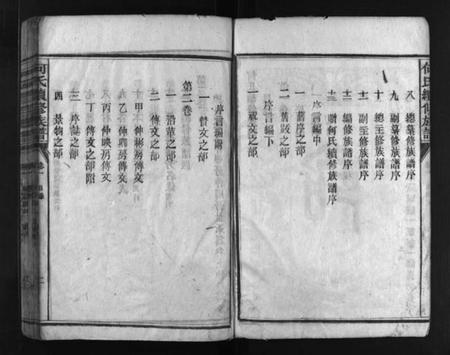 何氏續修族譜
八 總纂修族譜序
九 副纂修族譜序
十 總主修族譜序
十一 副主修族譜序
十二 編修族譜序
十三 贈何氏續修譜序
序言編中
一 舊序之部
二 舊跋之部
序言編下
一 祝文之部
序言編附
一 贊文之部
第二卷
一 沿革之部
二 傳文之部
甲 仲彬房傳文
乙 仲騁房傳文
丙 仲映房傳文
丁 傳文之部附
三 序誌之部
四 景物之部
何氏續修族譜